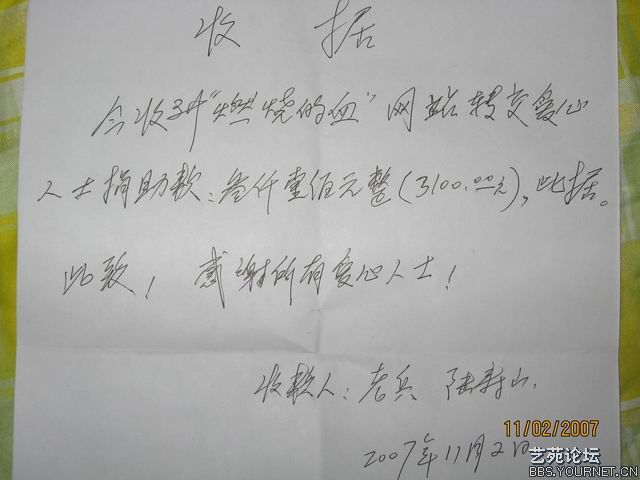 收 据
今收到"燃烧的血"网站转交爱心
人士捐助款:叁仟壹佰元整(3100.00元),此据。
此致!感谢所有爱心人士!
收款人:老兵 陆寿山.
11/02/2007
2007年11月2日
艺苑论坛
BBS.YOURNET.CN